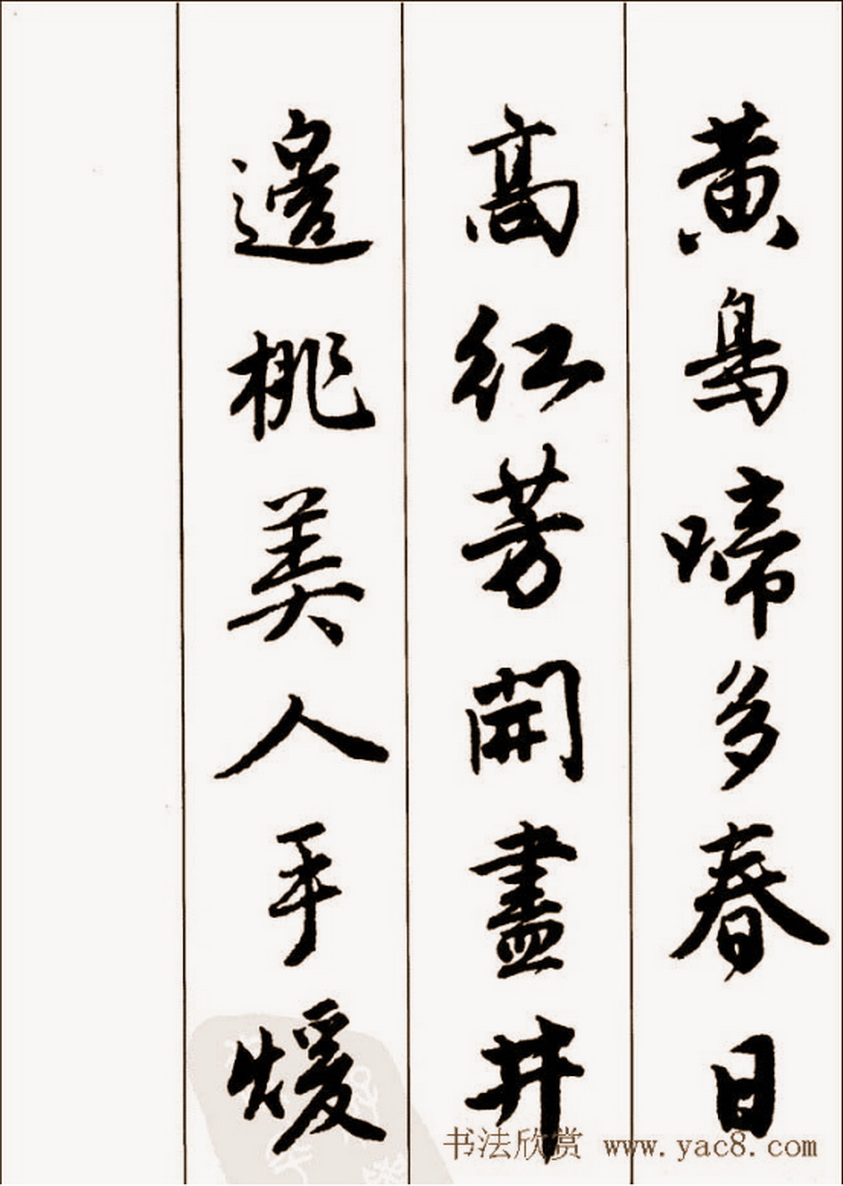 黄鸟啼多春日
高红芳開盡井
邊桃美人手煖
书法欣赏 www.yac8.com